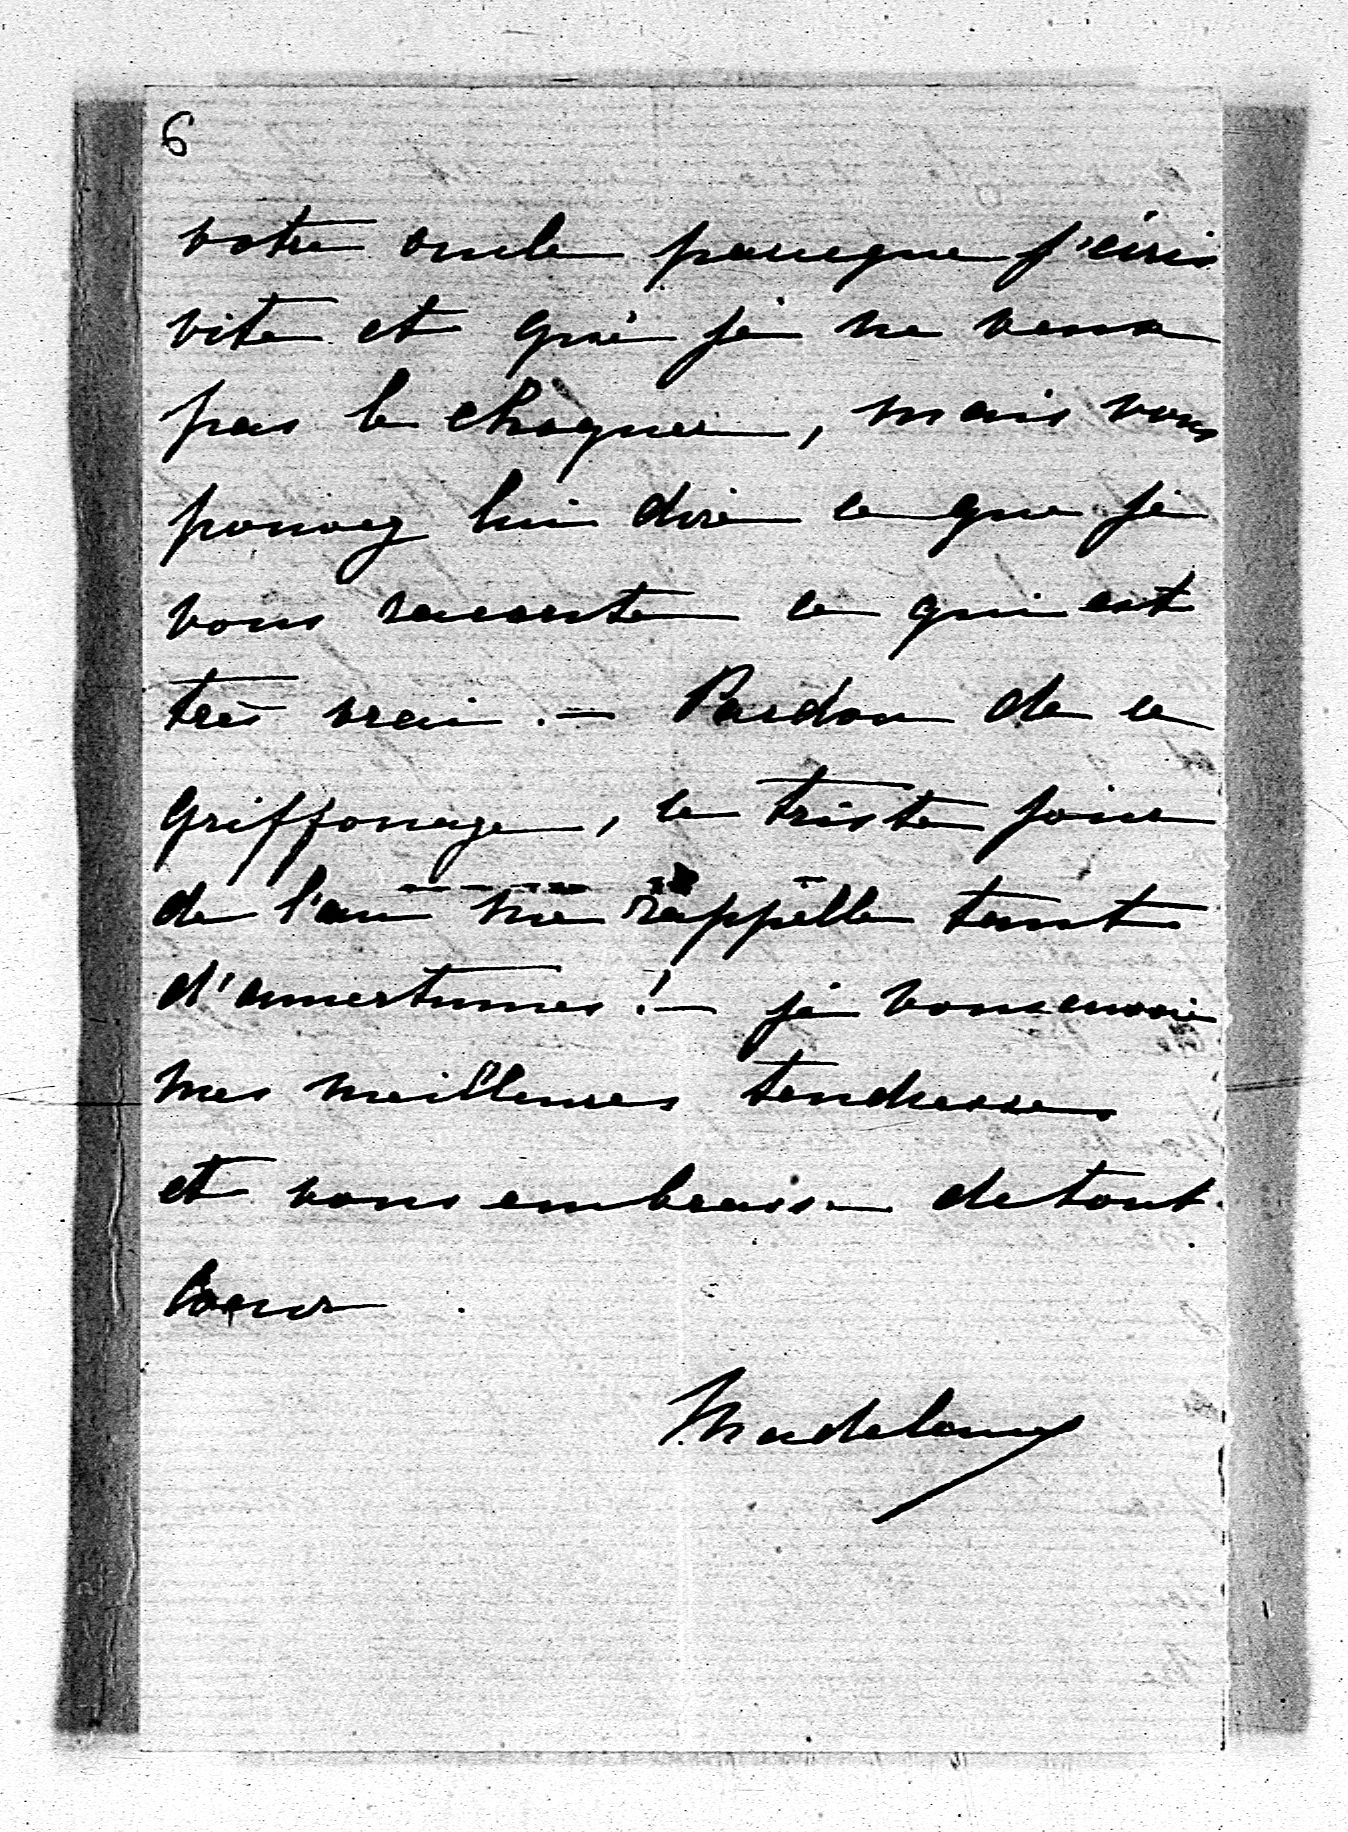 6
votre oncle parceque j'écris
vite et que je ne veux
pas le choquer, mais vous
pouvez lui dire ce que je
vous raconte ce qui est
très vrai. — Pardon de ce
griffonage, ce triste jour
de l'an me rappelle tant
d'amertumes! — je vous envoie
mes meilleures tendresses
et vous embrasse de tout
coeur.
Madeleine